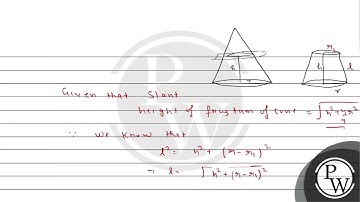 r₁
h
l
r
Given that Slant
height of frustum of cone = √h²+4r²/9
∵ we know that
l² = h² + (r-r₁)²
l = √h²+(r-r₁)²
PW
PW